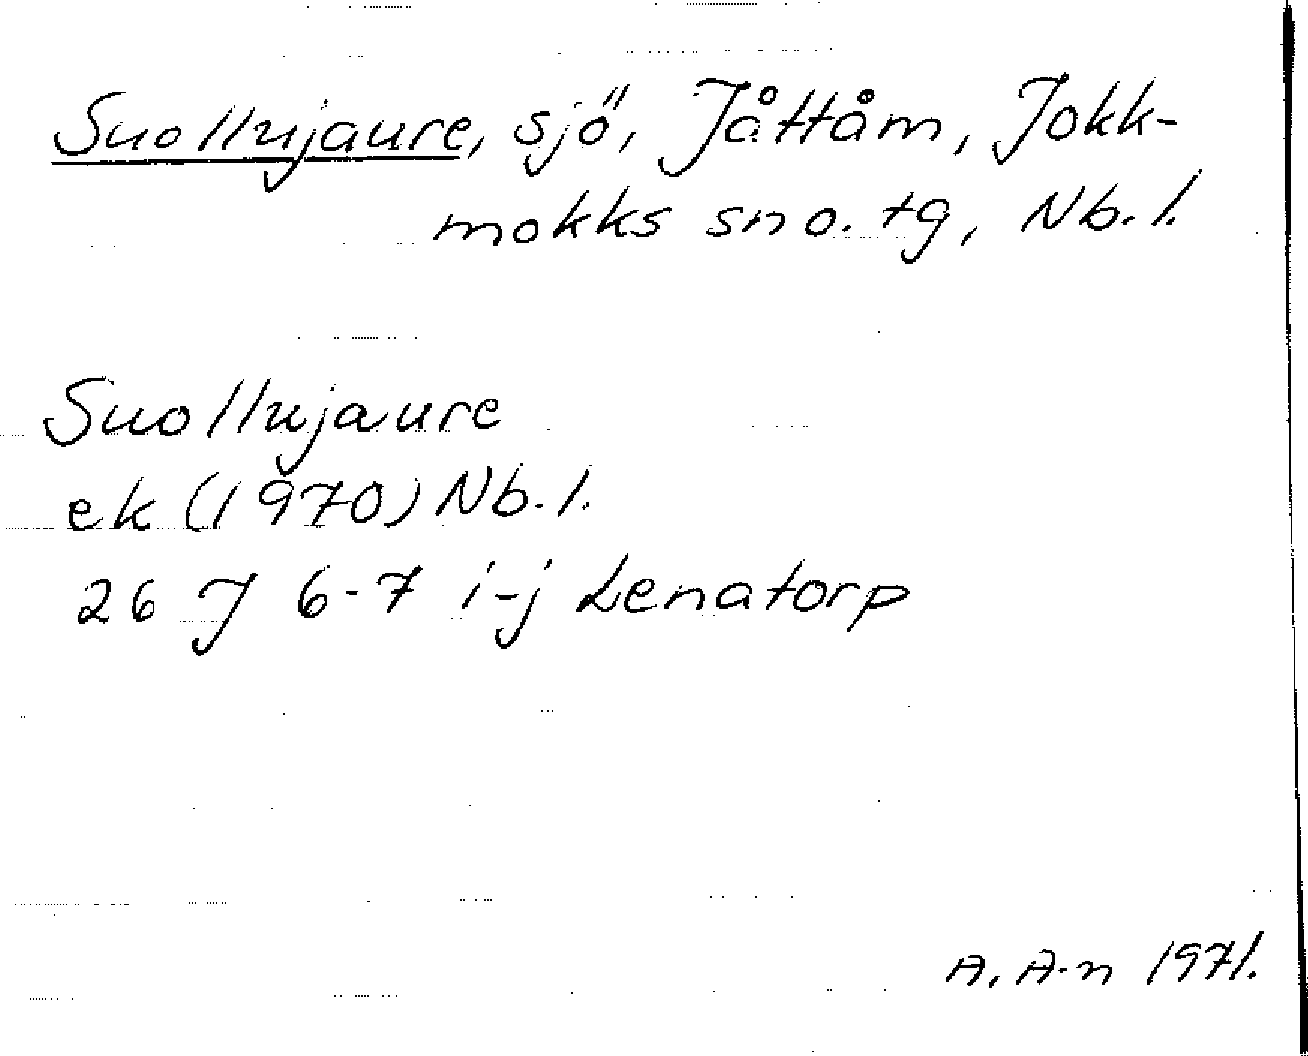 Suollujaure, sjö, Jåttåm, Jokk-
mokks sn o. tg, Nb. l.
Suollujaure
ek (1970) Nb. l.
26 J 6-7 i-j Lenatorp
A. A-n 1971.